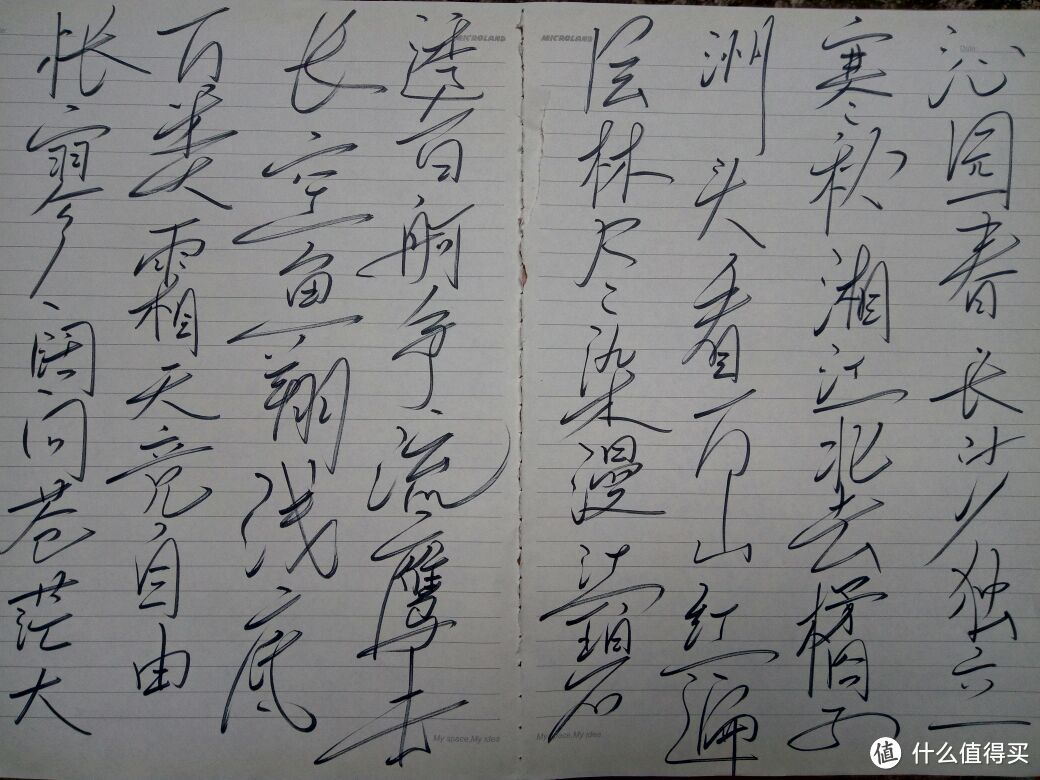 沁园春长沙独立
寒秋湘江北去橘子
洲头看万山红遍
层林尽染漫江碧
透百舸争流鹰击
长空鱼翔浅底
万类霜天竞自由
怅寥阔问苍茫大
MICROLAND
MICROLAND
Date
My space,My idea
My space,My idea
值 什么值得买